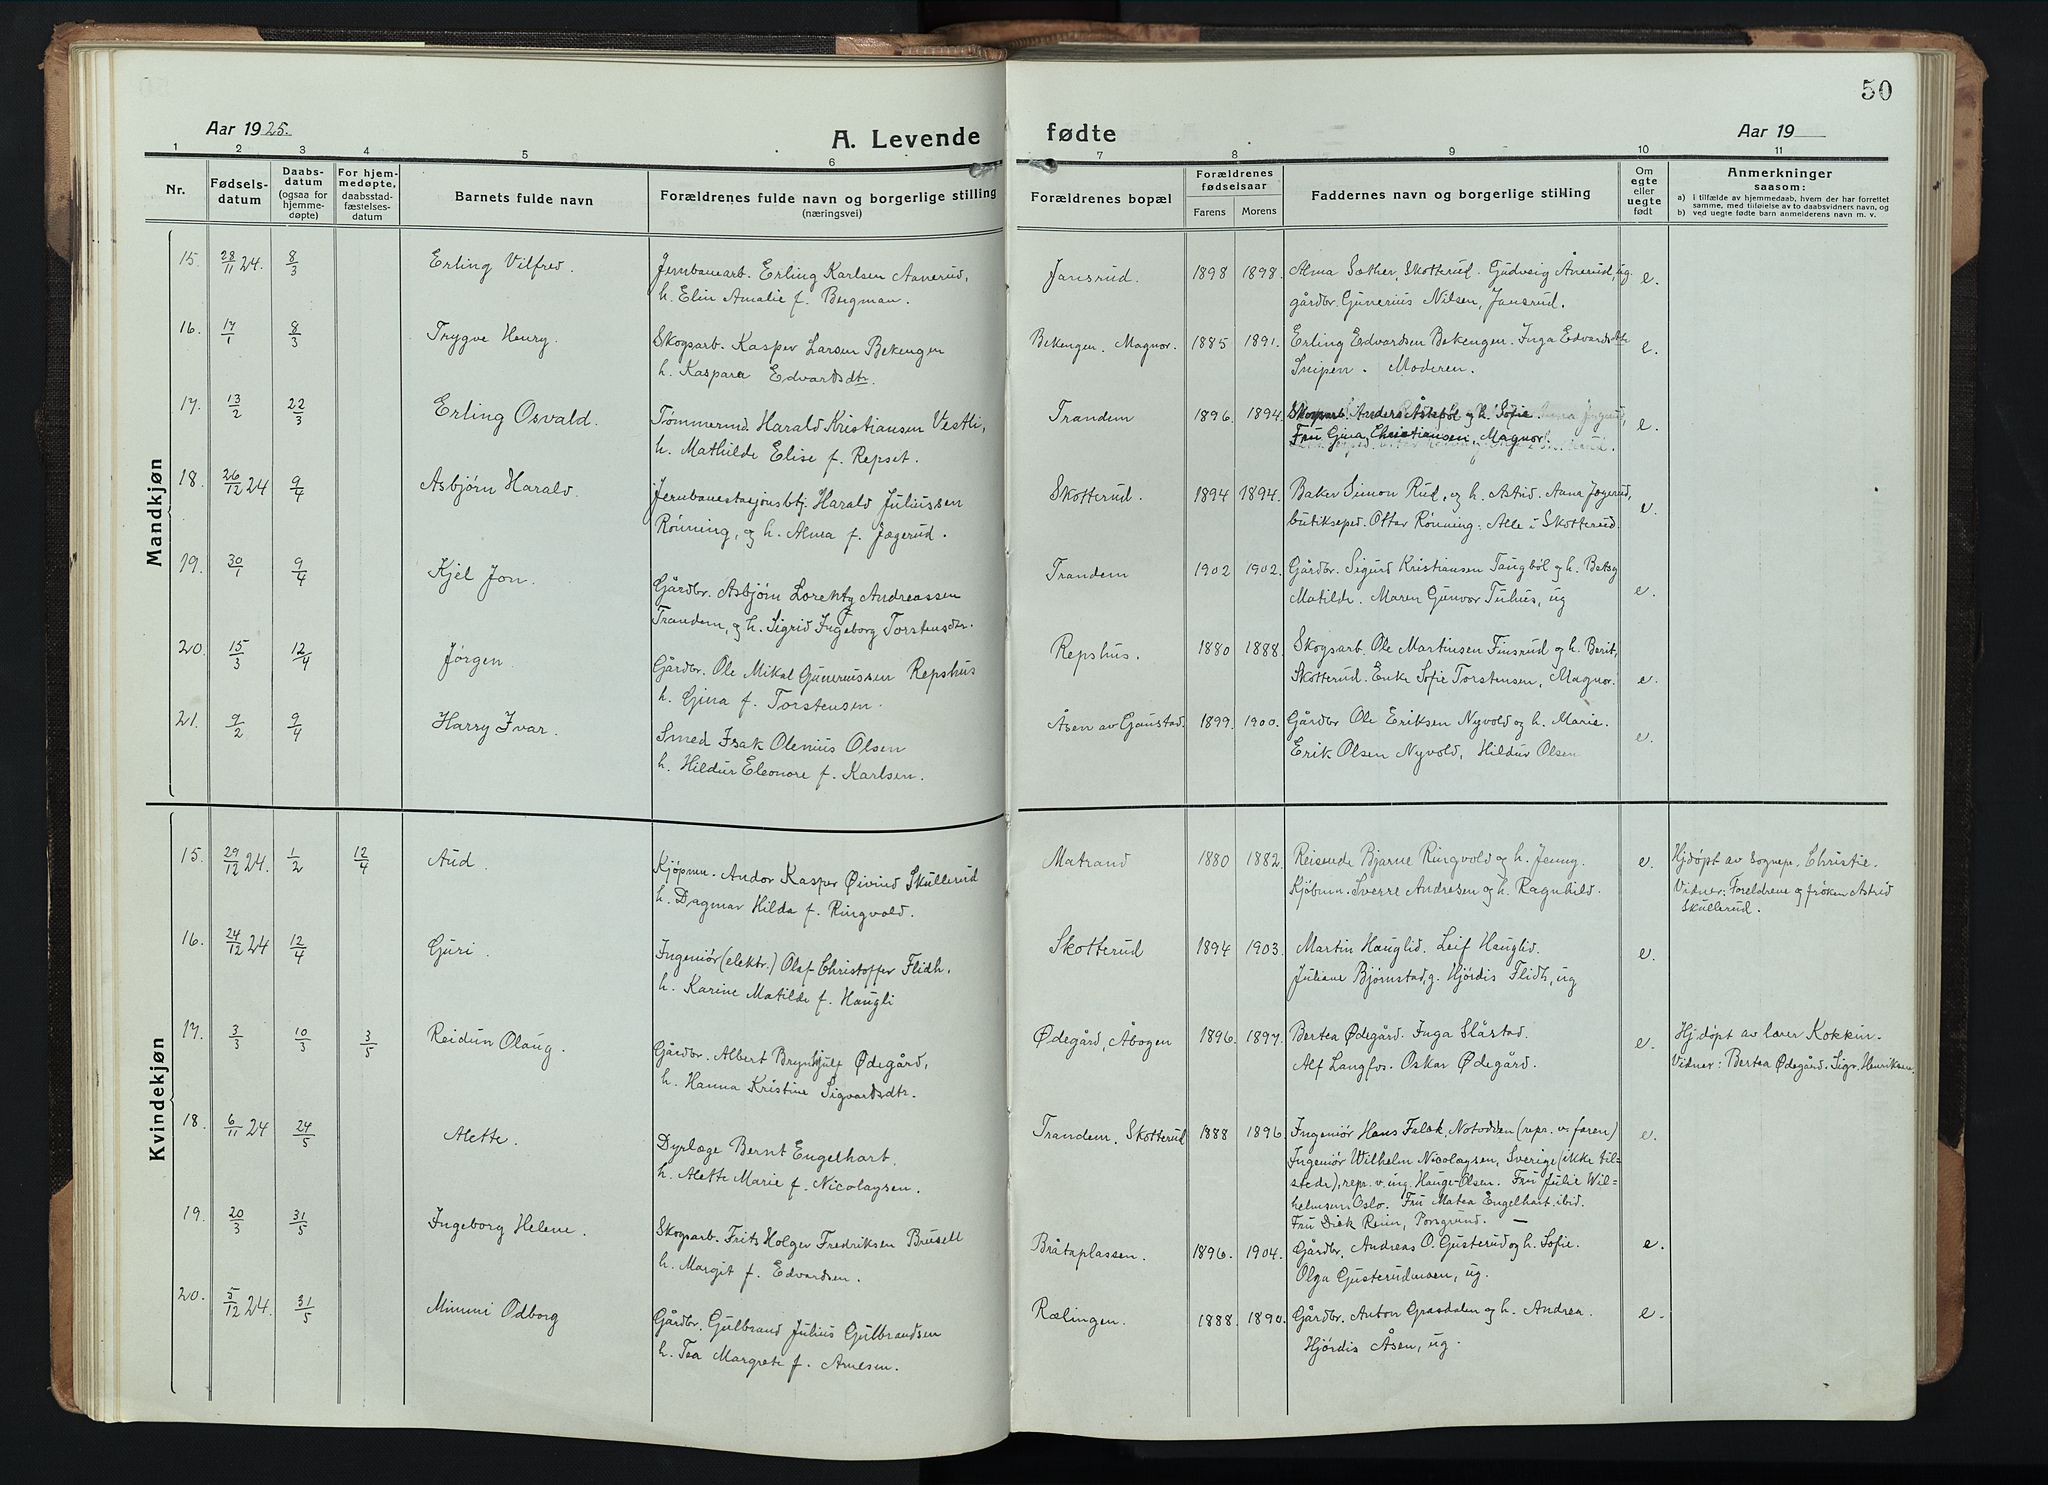 50
Aar 1925.
A. Levende fødte
Aar 19
1 2 3 4 5 6 7 8 9 10 11
Nr.
Fødsels-
datum
Daabs-
datum
(ogsaa for
hjemme-
døpte)
For hjem-
medøpte,
daabsstad-
fæstelses-
datum
Barnets fulde navn
Forældrenes fulde navn og borgerlige stilling
(næringsvei)
Forældrenes bopæl
Forældrenes
fødselsaar
Farens
Morens
Faddernes navn og borgerlige stilling
Om
egte
eller
uegte
født
Anmerkninger
saasom:
a) i tilfælde av hjemmedaab, hvem der har forrettet
samme, med tilføielse av to daabsvidners navn, og
b) ved uegte fødte barn anmelderens navn m. v.
Mandkjøn
15. 28/11 24. 8/3 Erling Vilfred. Jernbanearb. Erling Karlsen Aanerud, Jansrud. 1898 1898. Alma Sæther, Skotterud. Gudveig Ånerud, ug. e.
h. Elin Amalie f. Bergman. gårdbr. Gunerius Nilsen, Jansrud.
16. 17/1 8/3 Trygve Henry. Skogsarb. Kasper Larsen Bekengen Bekengen. Magnor. 1885 1891. Erling Edvardsen Bekengen. Inga Edvardsdtr e.
h. Kaspara Edvardsdtr. Snipen. Moderen.
17. 13/2 22/3 Erling Osvald. Tømmermd. Harald Kristiansen Vestli, Trandem 1896. 1894. Skogsarb. Anders Åbøl og h. Sofie e.
h. Mathilde Elise f. Repset. Fru Gina Christiansen, Magnor.
18. 26/12 24 9/4 Asbjørn Harald. Jernbanestasjonsbtj. Harald Juliussen Skotterud. 1894 1894. Baker Simon Rud, og h. Astrid. Anna Jøgerud, e.
Rønning, og h. Alma f. Jægerud. butikseped. Ottar Rønning: Alle i Skotterud.
19. 30/1 9/4 Kjel Jon. Gårdbr. Asbjørn Lorentz Andreassen Trandem 1902 1902. Gårdbr. Sigurd Kristiansen Taugbøl og h. Betsy e.
Trandem, og h. Sigrid Ingeborg Torstensdtr. Matilde. Maren Gunvor Tuhus, ug
20. 15/3 12/4 Jørgen. Gårdbr. Ole Mikal Guneriussen Repshus Repshus. 1880 1888. Skogsarb. Ole Martinsen Finsrud og h. Berit, e.
h. Gina f. Torstensen. Skotterud. Enke Sofie Torstensen, Magnor.
21. 9/2 9/4 Harry Ivar. Smed Isak Olenius Olsen Åsen av Gaustad. 1899. 1900. Gårdbr Ole Eriksen Nyvold og h. Marie. e.
h. Hildur Eleonore f. Karlsen. Erik Olsen Nyvold, Hildur Olsen
Kvindekjøn
15. 29/12 24. 1/2 12/4 Aud. Kjøpmn. Andor Kasper Øivind Skullerud Matrand 1880 1882. Reisende Bjarne Ringvold og h. Jenny. e. Hjdøpt av sognepr. Christie.
h. Dagmar Hilda f. Ringvold. Kjøbmn. Sverre Andresen og h. Ragnhild. Vidner: Foreldrene og frøken Astrid
Skullerud.
16. 24/12 24 12/4 Guri. Ingeniør (elektr.) Olaf Christoffer Flidh, Skotterud 1894 1903. Martin Hauglid. Leif Hauglid. e.
h. Karine Matilde f. Haugli Juliane Bjørnstad, g. Hjørdis Flidh, ug
17. 3/3 10/3 3/5 Reidun Olaug. Gårdbr. Albert Brynhjulf Ødegård, Ødegård, Åbogen 1896. 1897. Bertea Ødegård. Inga Slåstad. e. Hjdøpt av lærer Kokkin.
h. Hanna Kristine Sigvardsdtr. Alf Langfos. Oskar Ødegård. Vidner: Bertea Ødegård. Sigv. Henriksen.
18. 6/11 24 24/5 Alette. Dyrlæge Bernt Engelhart. Trandem. Skotterud 1888 1896. Ingeniør Hans Falck, Notodden (repr. v. faren) e.
h. Alette Marie f. Nicolaysen. Ingeniør Wilhelm Nicolaysen, Sverige (ikke til-
stede), repr. v. ing. Hauge-Olsen. Fru Julie Wil-
helmsen Oslo. Fru Matea Engelhart ibid.
Fru Dick Reim, Porsgrund. —
19. 20/3 31/5 Ingeborg Helene. Skogsarb. Frits Holger Fredriksen Brusell Bråtaplassen. 1896. 1904. Gårdbr. Andreas O. Gusterud og h. Sofie. e.
h. Margit f. Edvardsen. Olga Gusterudmoen, ug.
20. 5/12 24. 31/5 Mimmi Odborg Gårdbr. Gulbrand Julius Gulbrandsen Rælingen. 1888. 1890. Gårdbr. Anton Grasdalen og h. Andrea. e.
h. Tea Margrete f. Arnesen. Hjørdis Åsen, ug.